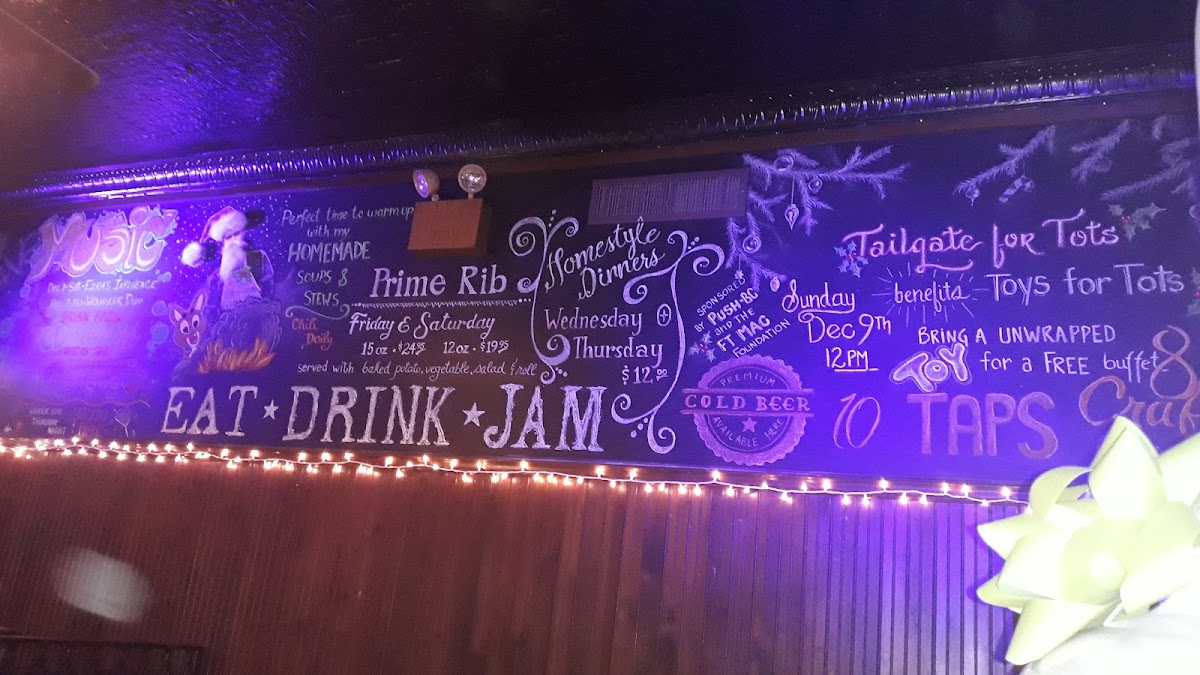 MUSIC
Perfect time to warm up
with my
HOMEMADE
SOUPS &
STEWS
Chili
Daily
Prime Rib
Friday & Saturday
15 oz - $24.95 12 oz - $19.95
served with baked potato, vegetable, salad & roll
EAT ★ DRINK ★ JAM
Homestyle
Dinners
Wednesday +
Thursday
$12.00
SPONSORED
BY PUSH-BG
and THE
FT MAG
FOUNDATION
PREMIUM
COLD BEER
AVAILABLE HERE
Tailgate for Tots
benefits Toys for Tots
Sunday
Dec 9th
12PM
BRING A UNWRAPPED
TOY for a FREE buffet
10 TAPS
8